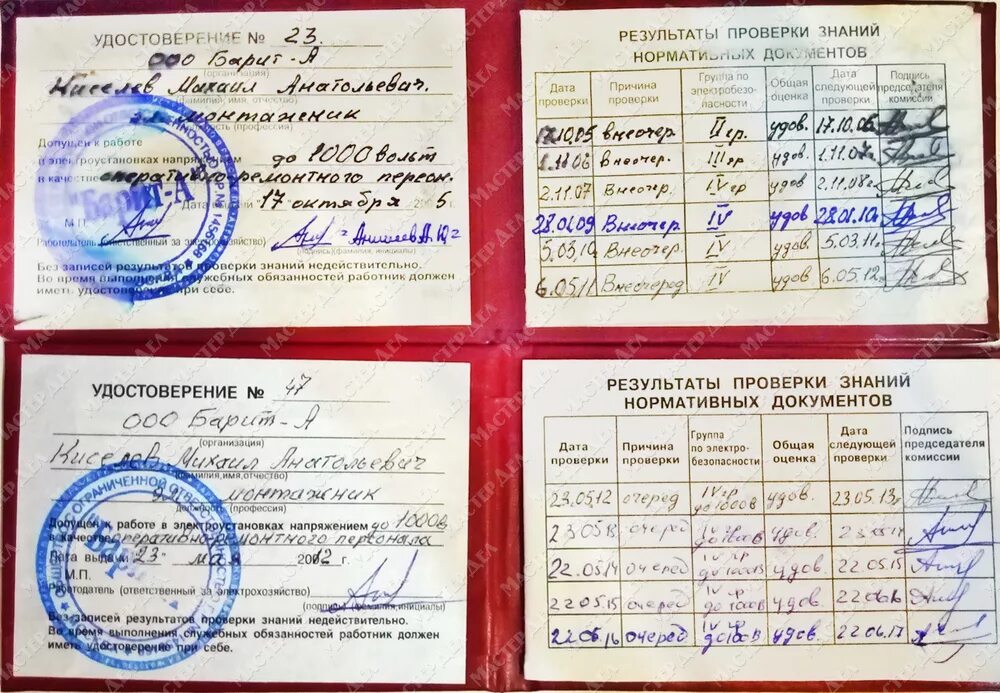 УДОСТОВЕРЕНИЕ № 23.
ООО Барит-А
(организация)
Киселев Михаил Анатольевич.
(фамилия, имя, отчество)
эл. монтажник
(профессия)
Допущен к работе
в электроустановках напряжением до 1000 вольт
в качестве оперативно-ремонтного персон.
Дата выдачи "17 октября 2005
М.П.
Работодатель (ответственный за электрохозяйство)
(подпись) (фамилия, инициалы)
Без записей результатов проверки знаний недействительно.
Во время выполнения служебных обязанностей работник должен
иметь удостоверение при себе.
РЕЗУЛЬТАТЫ ПРОВЕРКИ ЗНАНИЙ
НОРМАТИВНЫХ ДОКУМЕНТОВ
Дата проверки Причина проверки Группа по электробезопасности Общая оценка Дата следующей проверки Подпись председателя комиссии
17.10.05 внеочер. II гр. удов. 17.10.06
1.11.06 Внеочер. III гр удов. 1.11.07г
2.11.07 Внеочер. IV гр удов 2.11.08г
28.01.09 Внеочер. IV удов 28.01.10
5.03.10 Внеочер. IV удов. 5.03.11
6.05.11 Внеочеред IV удов 6.05.12
УДОСТОВЕРЕНИЕ № 47
ООО Барит-А
(организация)
Киселев Михаил Анатольевич
(фамилия,имя,отчество)
эл. монтажник
должность (профессия)
Допущен к работе в электроустановках напряжением до 1000в
в качестве оперативно-ремонтного персонала
Дата выдачи "23" мая 2012 г.
М.П.
Работодатель (ответственный за электрохозяйство)
(подпись) (фамилия,инициалы)
Без записей результатов проверки знаний недействительно.
Во время выполнения служебных обязанностей работник должен
иметь удостоверение при себе.
РЕЗУЛЬТАТЫ ПРОВЕРКИ ЗНАНИЙ
НОРМАТИВНЫХ ДОКУМЕНТОВ
Дата проверки Причина проверки Группа по электробезопасности Общая оценка Дата следующей проверки Подпись председателя комиссии
23.05.12 очеред IV гр до 1000 в удов. 23.05.13г
23.05.13 очеред IV гр до 1000в удов.
22.05.14 очеред IV гр до 1000в удов. 22.05.15
22.05.15 очеред IV гр до 1000в удов. 22.06.16
22.06.16 очеред IV гр до 1000В удов. 22.06.17